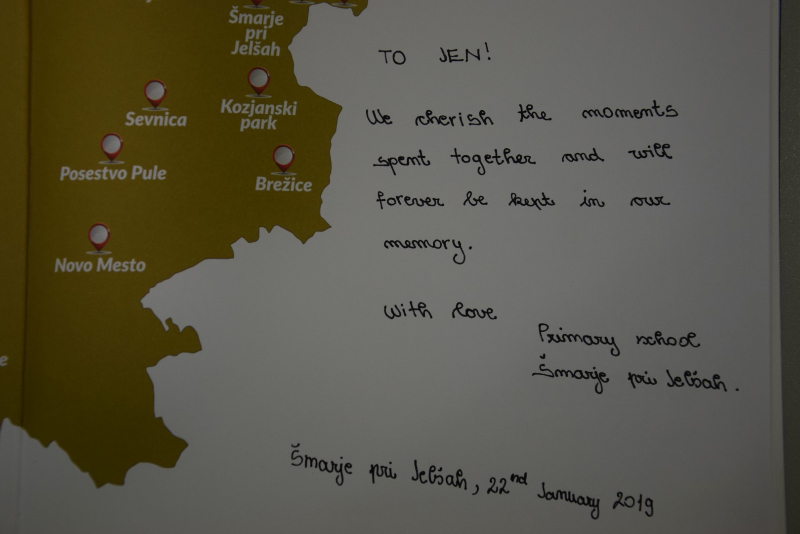 Šmarje
pri
Jelšah
Kozjanski
park
Sevnica
Posestvo Pule
Brežice
Novo Mesto
TO JEN!
We cherish the moments
spent together and will
forever be kept in our
memory.
With love
Primary school
Šmarje pri Jelšah.
Šmarje pri Jelšah, 22nd January 2019